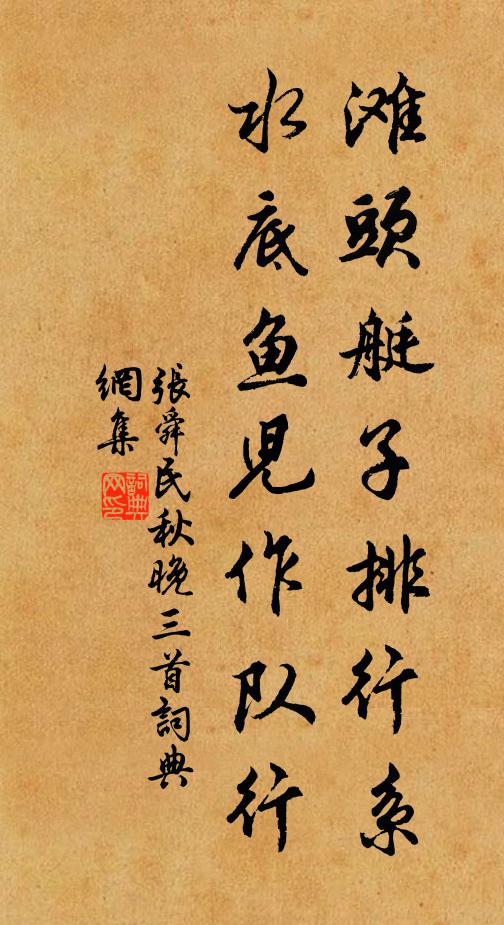 滩頭艇子排行系
水底鱼児作队行
張舜民秋晚三首詞典
網集
詞典
网印